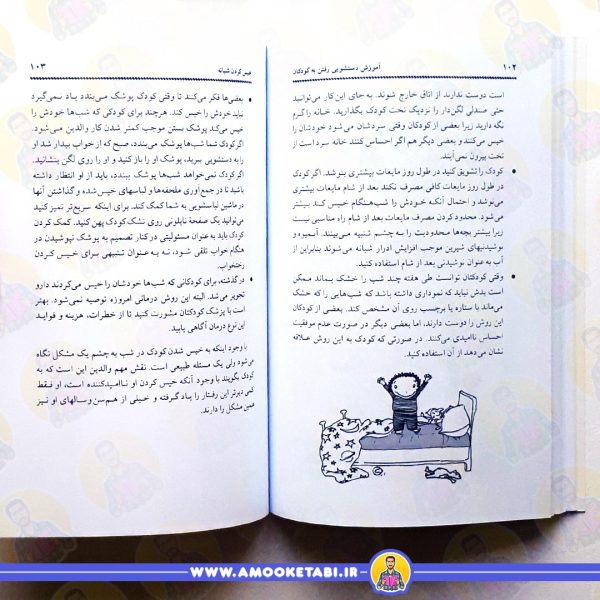 ۱۰۲
آموزش دستشویی رفتن به کودکان
است دوست ندارند از اتاق خارج شوند. به جای این‌کار می‌توانید
حتی صندلی لگن‌دار را نزدیک تخت کودک بگذارید. خانه را گرم
نگه دارید زیرا بعضی از کودکان وقتی سردشان می‌شود خودشان را
خیس می‌کنند و بعضی دیگر هم اگر احساس کنند خانه سرد است از
تخت بیرون نمی‌آیند.
• کودک را تشویق کنید در طول روز مایعات بیشتری بنوشد. اگر کودک
در طول روز مایعات کافی مصرف نکند بعد از شام مایعات بیشتری
می‌نوشد و احتمال آنکه خودش را شب‌هنگام خیس کند بیشتر
می‌شود. محدود کردن مصرف مایعات بعد از شام راه مناسبی نیست
زیرا بیشتر بچه‌ها محدودیت را به چشم تنبیه می‌بینند. آبمیوه و
نوشیدنیهای شیرین موجب افزایش ادرار شبانه می‌شوند بنابراین از
آب به عنوان نوشیدنی بعد از شام استفاده کنید.
• وقتی کودکتان توانست طی هفته چند شب را خشک بماند ممکن
است بدش نیاید که نموداری داشته باشد که شب‌هایی را که خشک
می‌ماند با ستاره یا برچسب روی آن مشخص کند. بعضی از کودکان
این روش را دوست دارند، اما بعضی دیگر در صورت عدم موفقیت
احساس ناامیدی می‌کنند. در صورتی که کودک به این روش علاقه
نشان می‌دهد از آن استفاده کنید.
خیس کردن شبانه
۱۰۳
• بعضی‌ها فکر می‌کنند تا وقتی کودک پوشک می‌بندد یاد نمی‌گیرد
نباید خودش را خیس کند. هرچند برای کودکی که شب‌ها خودش را
خیس می‌کند پوشک بستن موجب کمتر شدن کار والدین می‌شود.
اگر کودک شما شب‌ها پوشک می‌بندد، صبح که از خواب بیدار شد او
را به دستشویی ببرید، پوشک او را باز کنید و او را روی لگن بنشانید.
اگر کودک نمی‌خواهد شب‌ها پوشک ببندد، باید از او انتظار داشته
باشید تا در جمع‌آوری ملحفه‌ها و لباسهای خیس شده و گذاشتن آنها
در ماشین لباسشویی به شما کمک کند. برای اینکه سریع‌تر تمیز کنید
می‌توانید یک صفحهٔ نایلونی روی تشک کودک پهن کنید. کمک کردن
کودک باید به عنوان مسئولیتی در کنار تصمیم به پوشک نپوشیدن در
هنگام خواب تلقی شود، نه به عنوان تنبیهی برای خیس کردن
رختخواب.
• درگذشته، برای کودکانی که شب‌ها خودشان را خیس می‌کردند دارو
تجویز می‌شد. البته این روش درمانی امروزه توصیه نمی‌شود. بهتر
است با پزشک کودکتان مشورت کنید تا از خطرات، هزینه و فواید
این نوع درمان آگاهی یابید.
با وجود اینکه به خیس شدن کودک در شب به چشم یک مشکل نگاه
می‌شود ولی یک مسئله طبیعی است. نقش مهم والدین این است که به
کودک بگویند با وجود آنکه خیس کردن او ناامیدکننده است، او فقط
کمی دیرتر این رفتار را یاد گرفته و خیلی از هم‌سن وسالهای او نیز
همین مشکل را دارند.
WWW.AMOOKETABI.IR